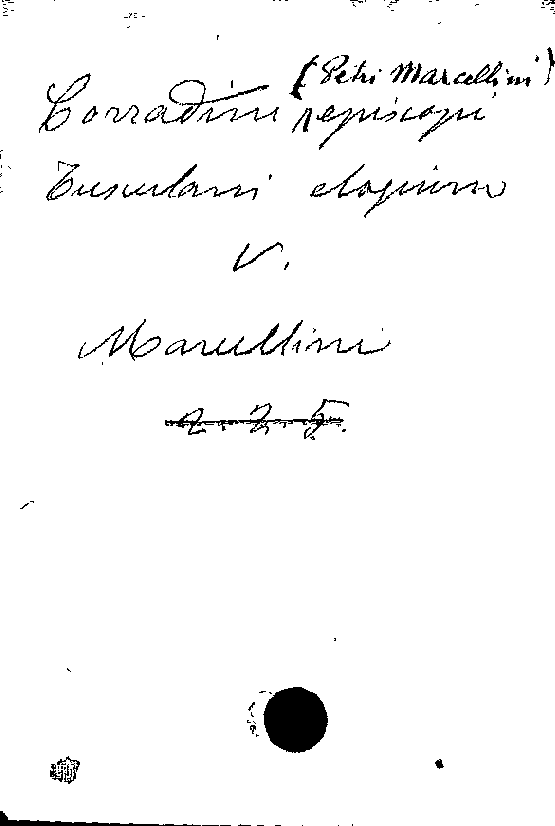 (Petri Marcellini)
Corradini episcopi
Tusculani elogium
V.
Marcellini
2. 2. 5.